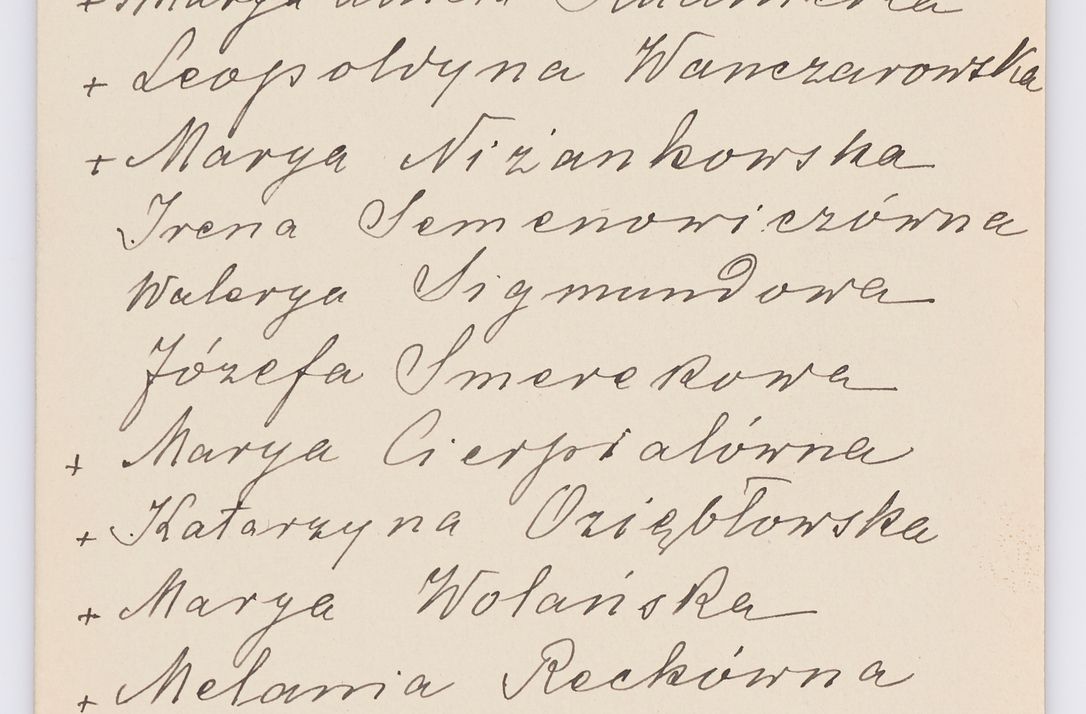 + Leopoldyna Wanczarowska
+ Marya Niżankowska
Irena Semenowiczówna
Walerya Sigmundowa
Józefa Smerekowa
+ Marya Cierpiałówna
+ Katarzyna Oziębłowska
+ Marya Wolańska
+ Melania Reckówna